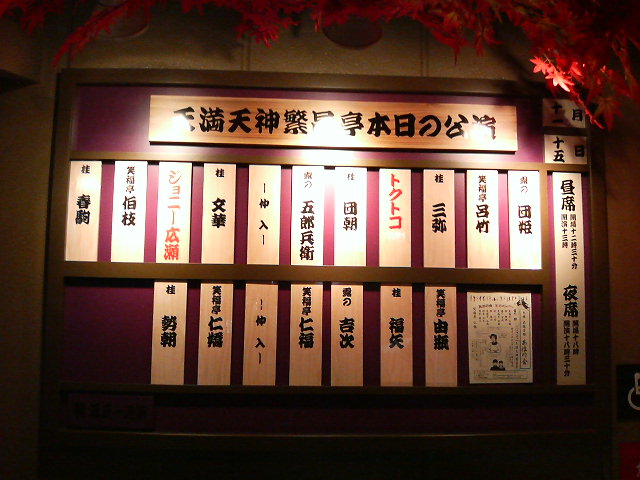 天満天神繁昌亭本日の公演
十二月
十五日
昼席
開場十二時三十分
開演十三時
露の 団姫
笑福亭 呂竹
桂 三弥
トクトコ
桂 団朝
露の 五郎兵衛
ー仲入ー
桂 文華
ジョニー広瀬
笑福亭 伯枝
桂 春駒
夜席
開場十八時
開演十八時三十分
笑福亭 由瓶
桂 福矢
露の 吉次
笑福亭 仁福
ー仲入ー
笑福亭 仁嬌
桂 勢朝